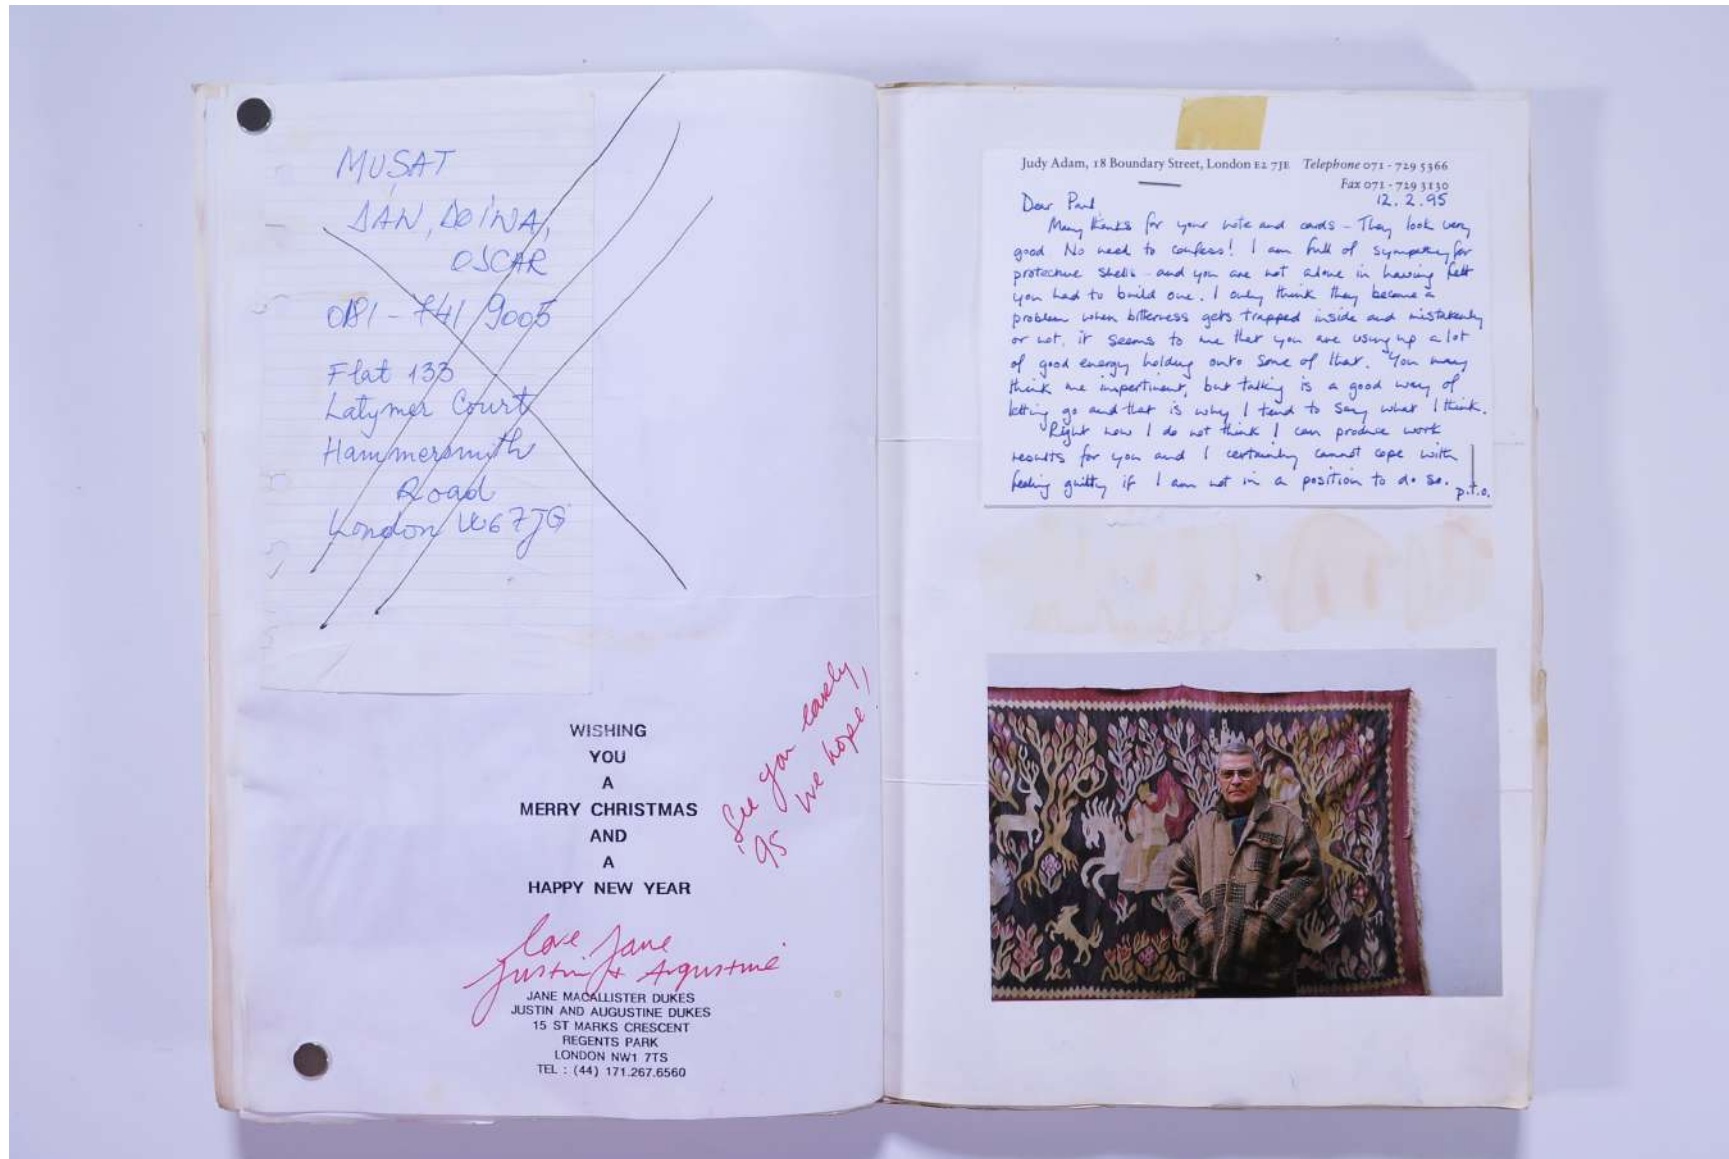 MUSAT
DAN, DOINA,
OSCAR
081 - 741 9005
Flat 133
Latymer Court
Hammersmith
Road
London W67JG
WISHING
YOU
A
MERRY CHRISTMAS
AND
A
HAPPY NEW YEAR
See you early,
'95 we hope!
love Jane
Justin + Augustine
JANE MACALLISTER DUKES
JUSTIN AND AUGUSTINE DUKES
15 ST MARKS CRESCENT
REGENTS PARK
LONDON NW1 7TS
TEL : (44) 171.267.6560
Judy Adam, 18 Boundary Street, London E2 7JE Telephone 071 - 729 5366
Fax 071 - 729 3130
12.2.95
Dear Paul,
Many thanks for your note and cards - They look very
good. No need to confess! I am full of sympathy for
protective shells - and you are not alone in having felt
you had to build one. I only think they become a
problem when bitterness gets trapped inside and mistakenly
or not, it seems to me that you are using up a lot
of good energy holding onto some of that. You may
think me impertinent, but talking is a good way of
letting go and that is why I tend to say what I think.
Right now I do not think I can produce work
results for you and I certainly cannot cope with
feeling guilty if I am not in a position to do so.
p.t.o.